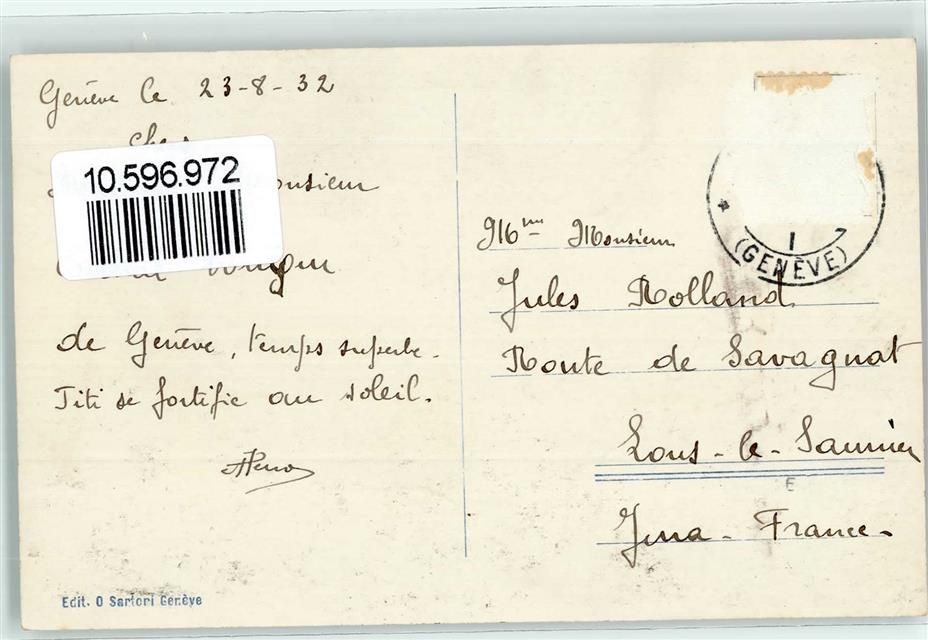 Genève le 23-8-32
Chers
10.596.972
Monsieur
de Genève, temps superbe.
Titi se fortifie au soleil.
Edit. O Sartori Genève
1
(GENÈVE)
Mme Monsieur
Jules Rolland
Route de Savagnat
Lons-le-Saunier
E
Jura - France.